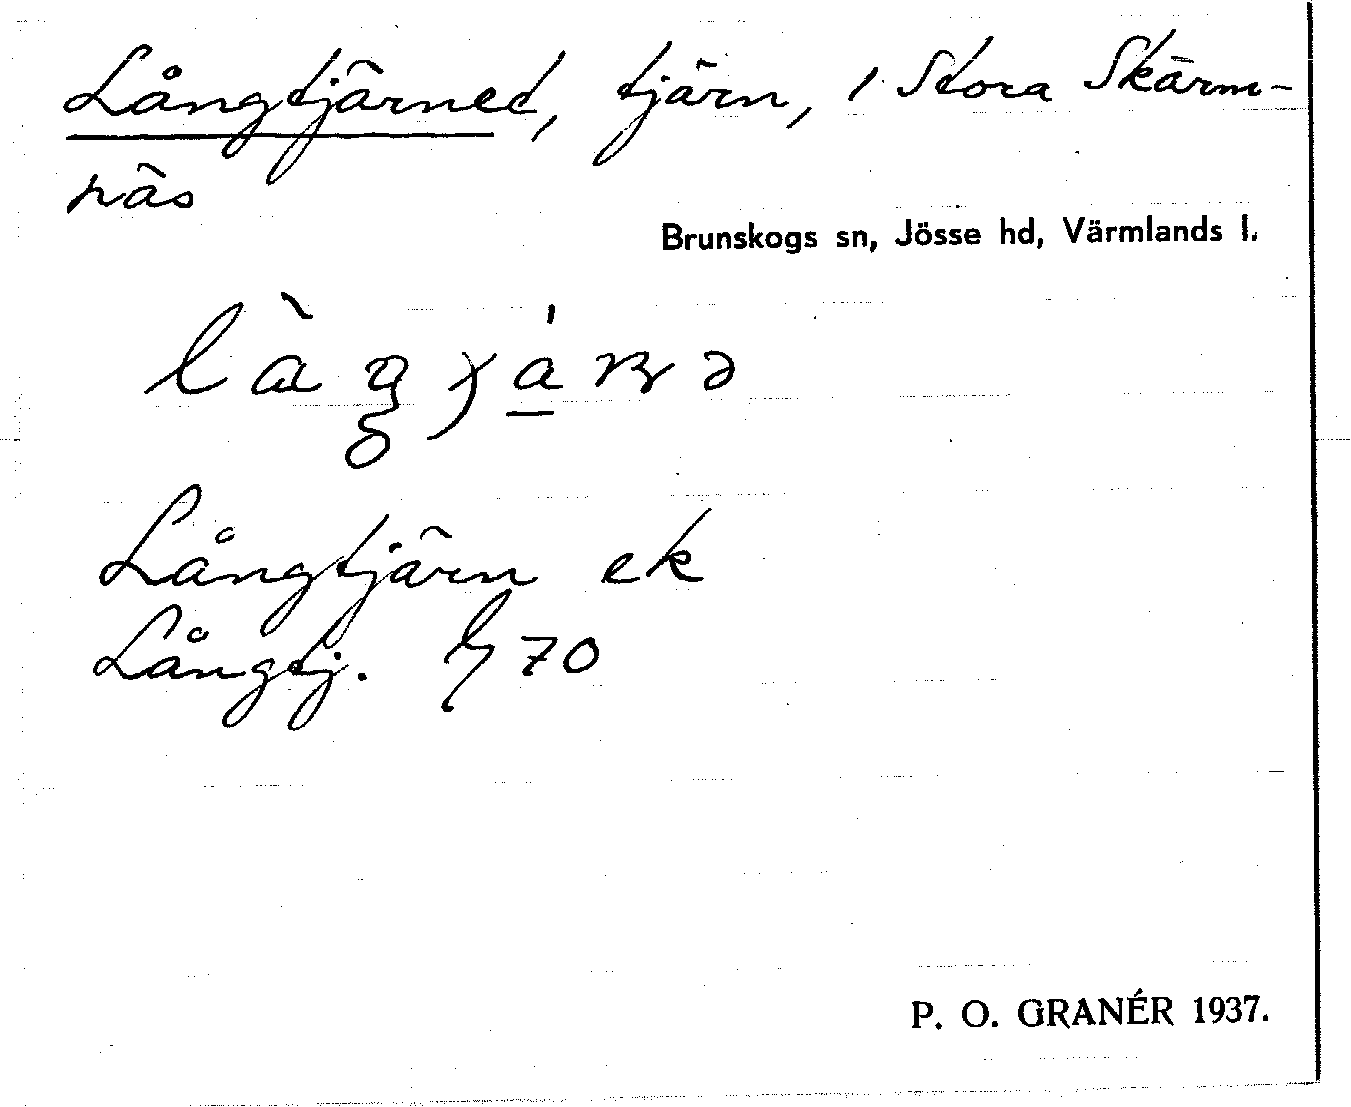 Långtjärnet, tjärn, i Stora Skärm-
näs
Brunskogs sn, Jösse hd, Värmlands l.
Långtjärn ek
Långtj. 70
P. O. GRANÉR 1937.